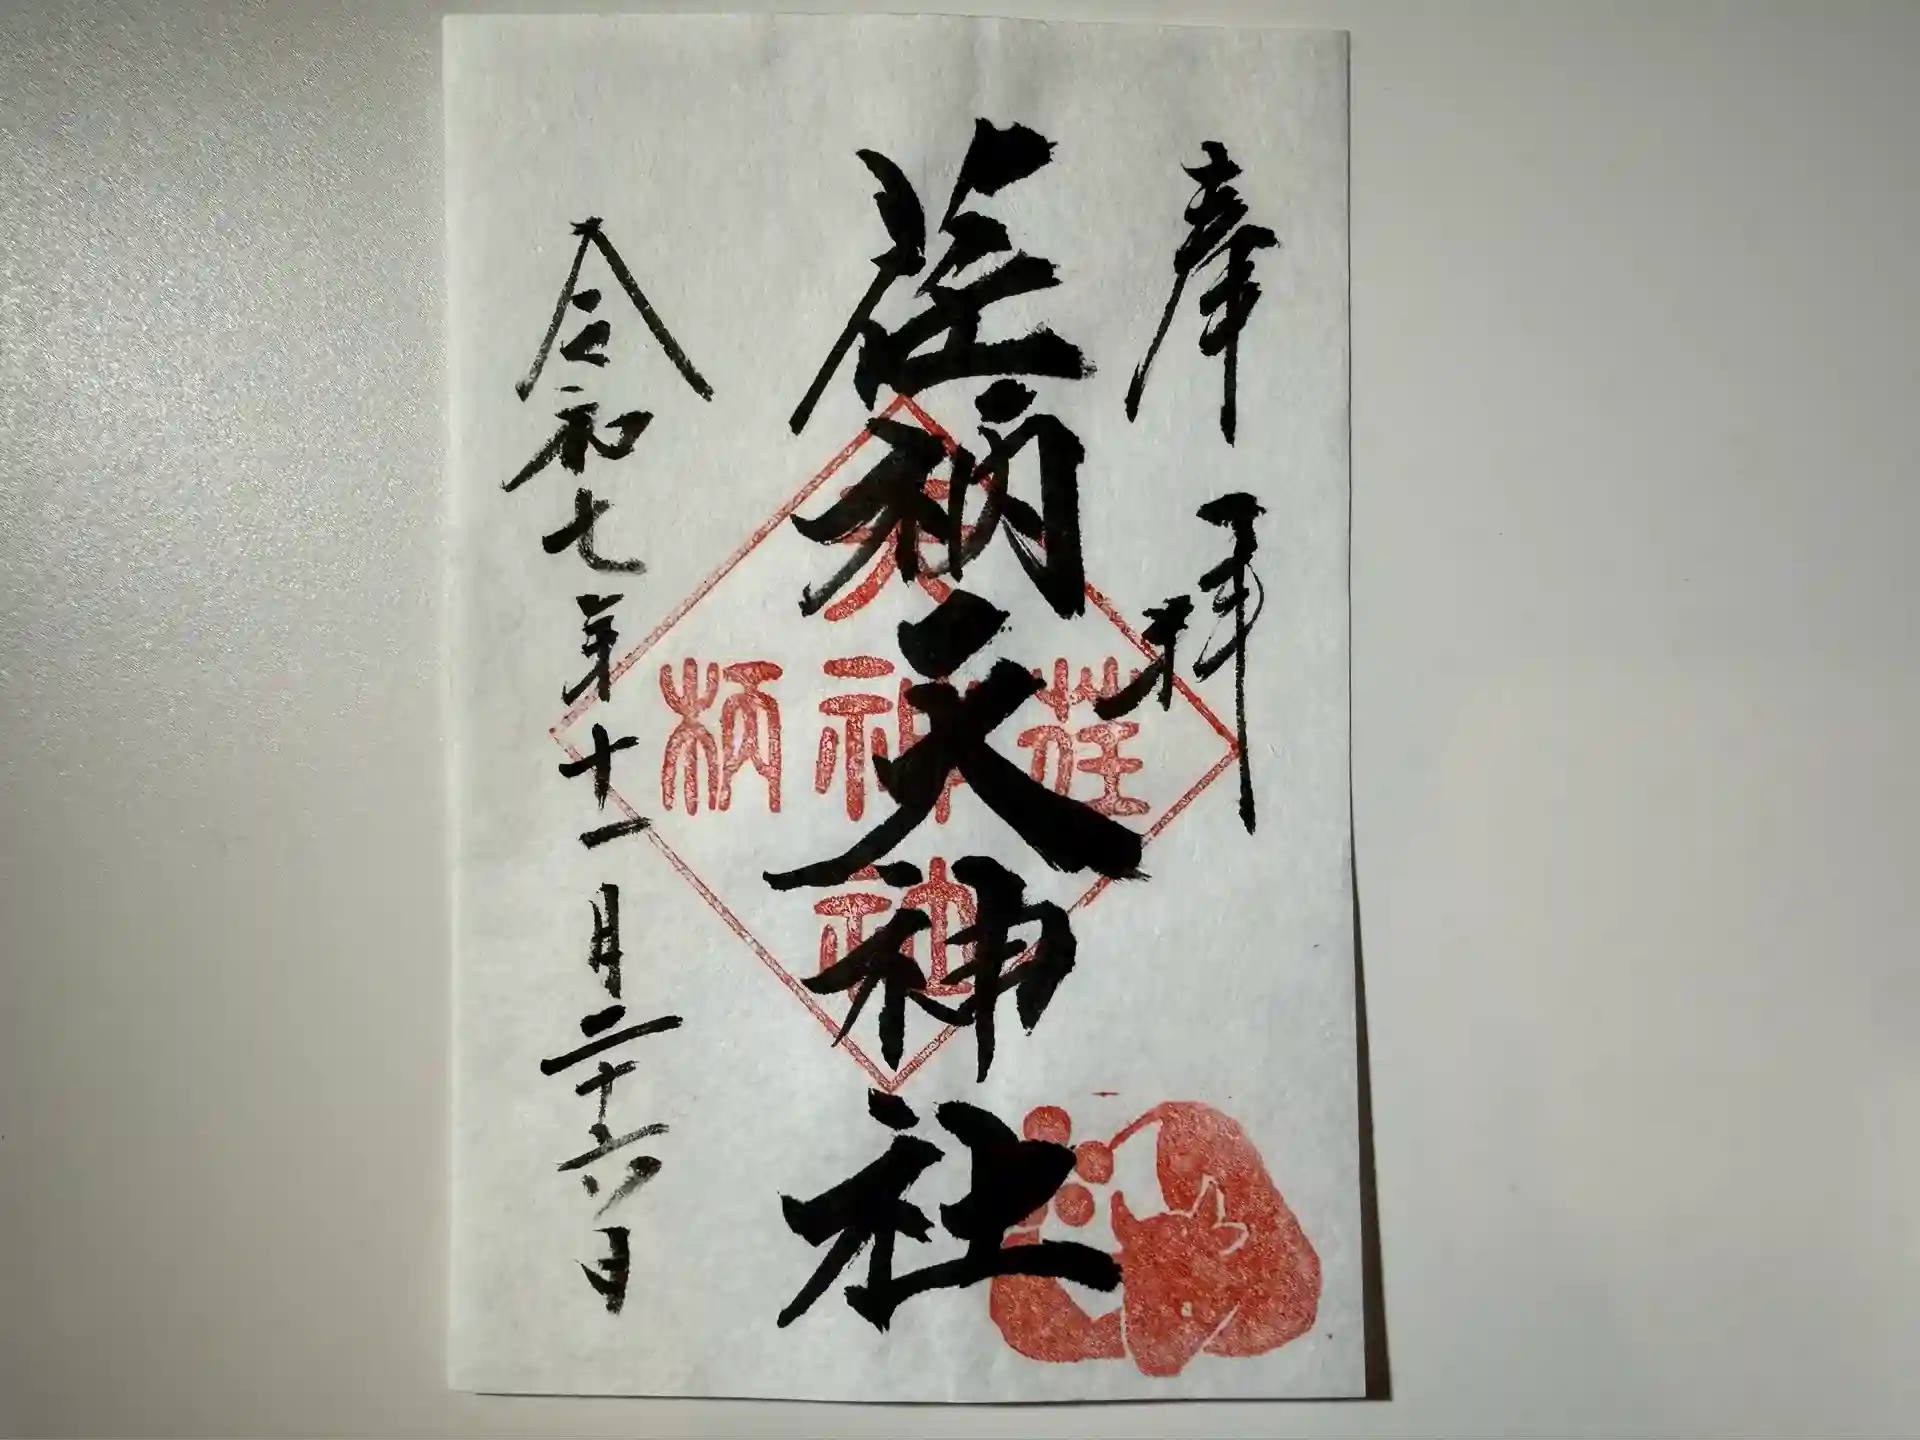 奉拝
荏柄天神社
令和七年十一月二十六日
天
荏神柄
社